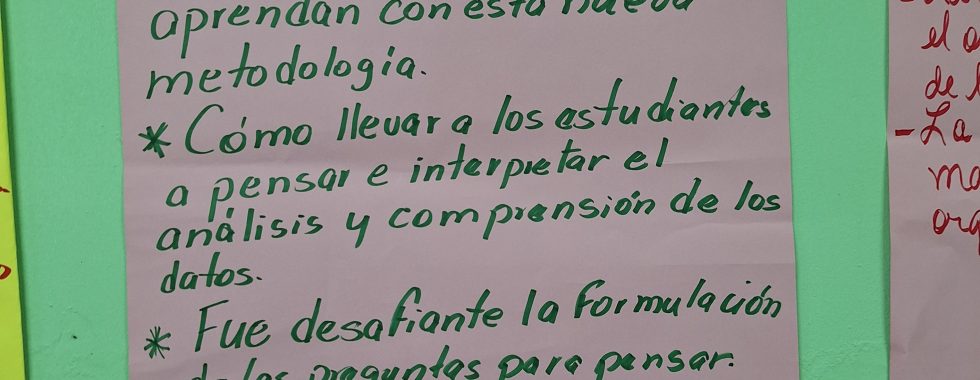 aprendan con esta nueva
metodología.
* Cómo llevar a los estudiantes
a pensar e interpretar el
análisis y comprensión de los
datos.
* Fue desafiante la formulación
de las preguntas para pensar.
el
de
- La